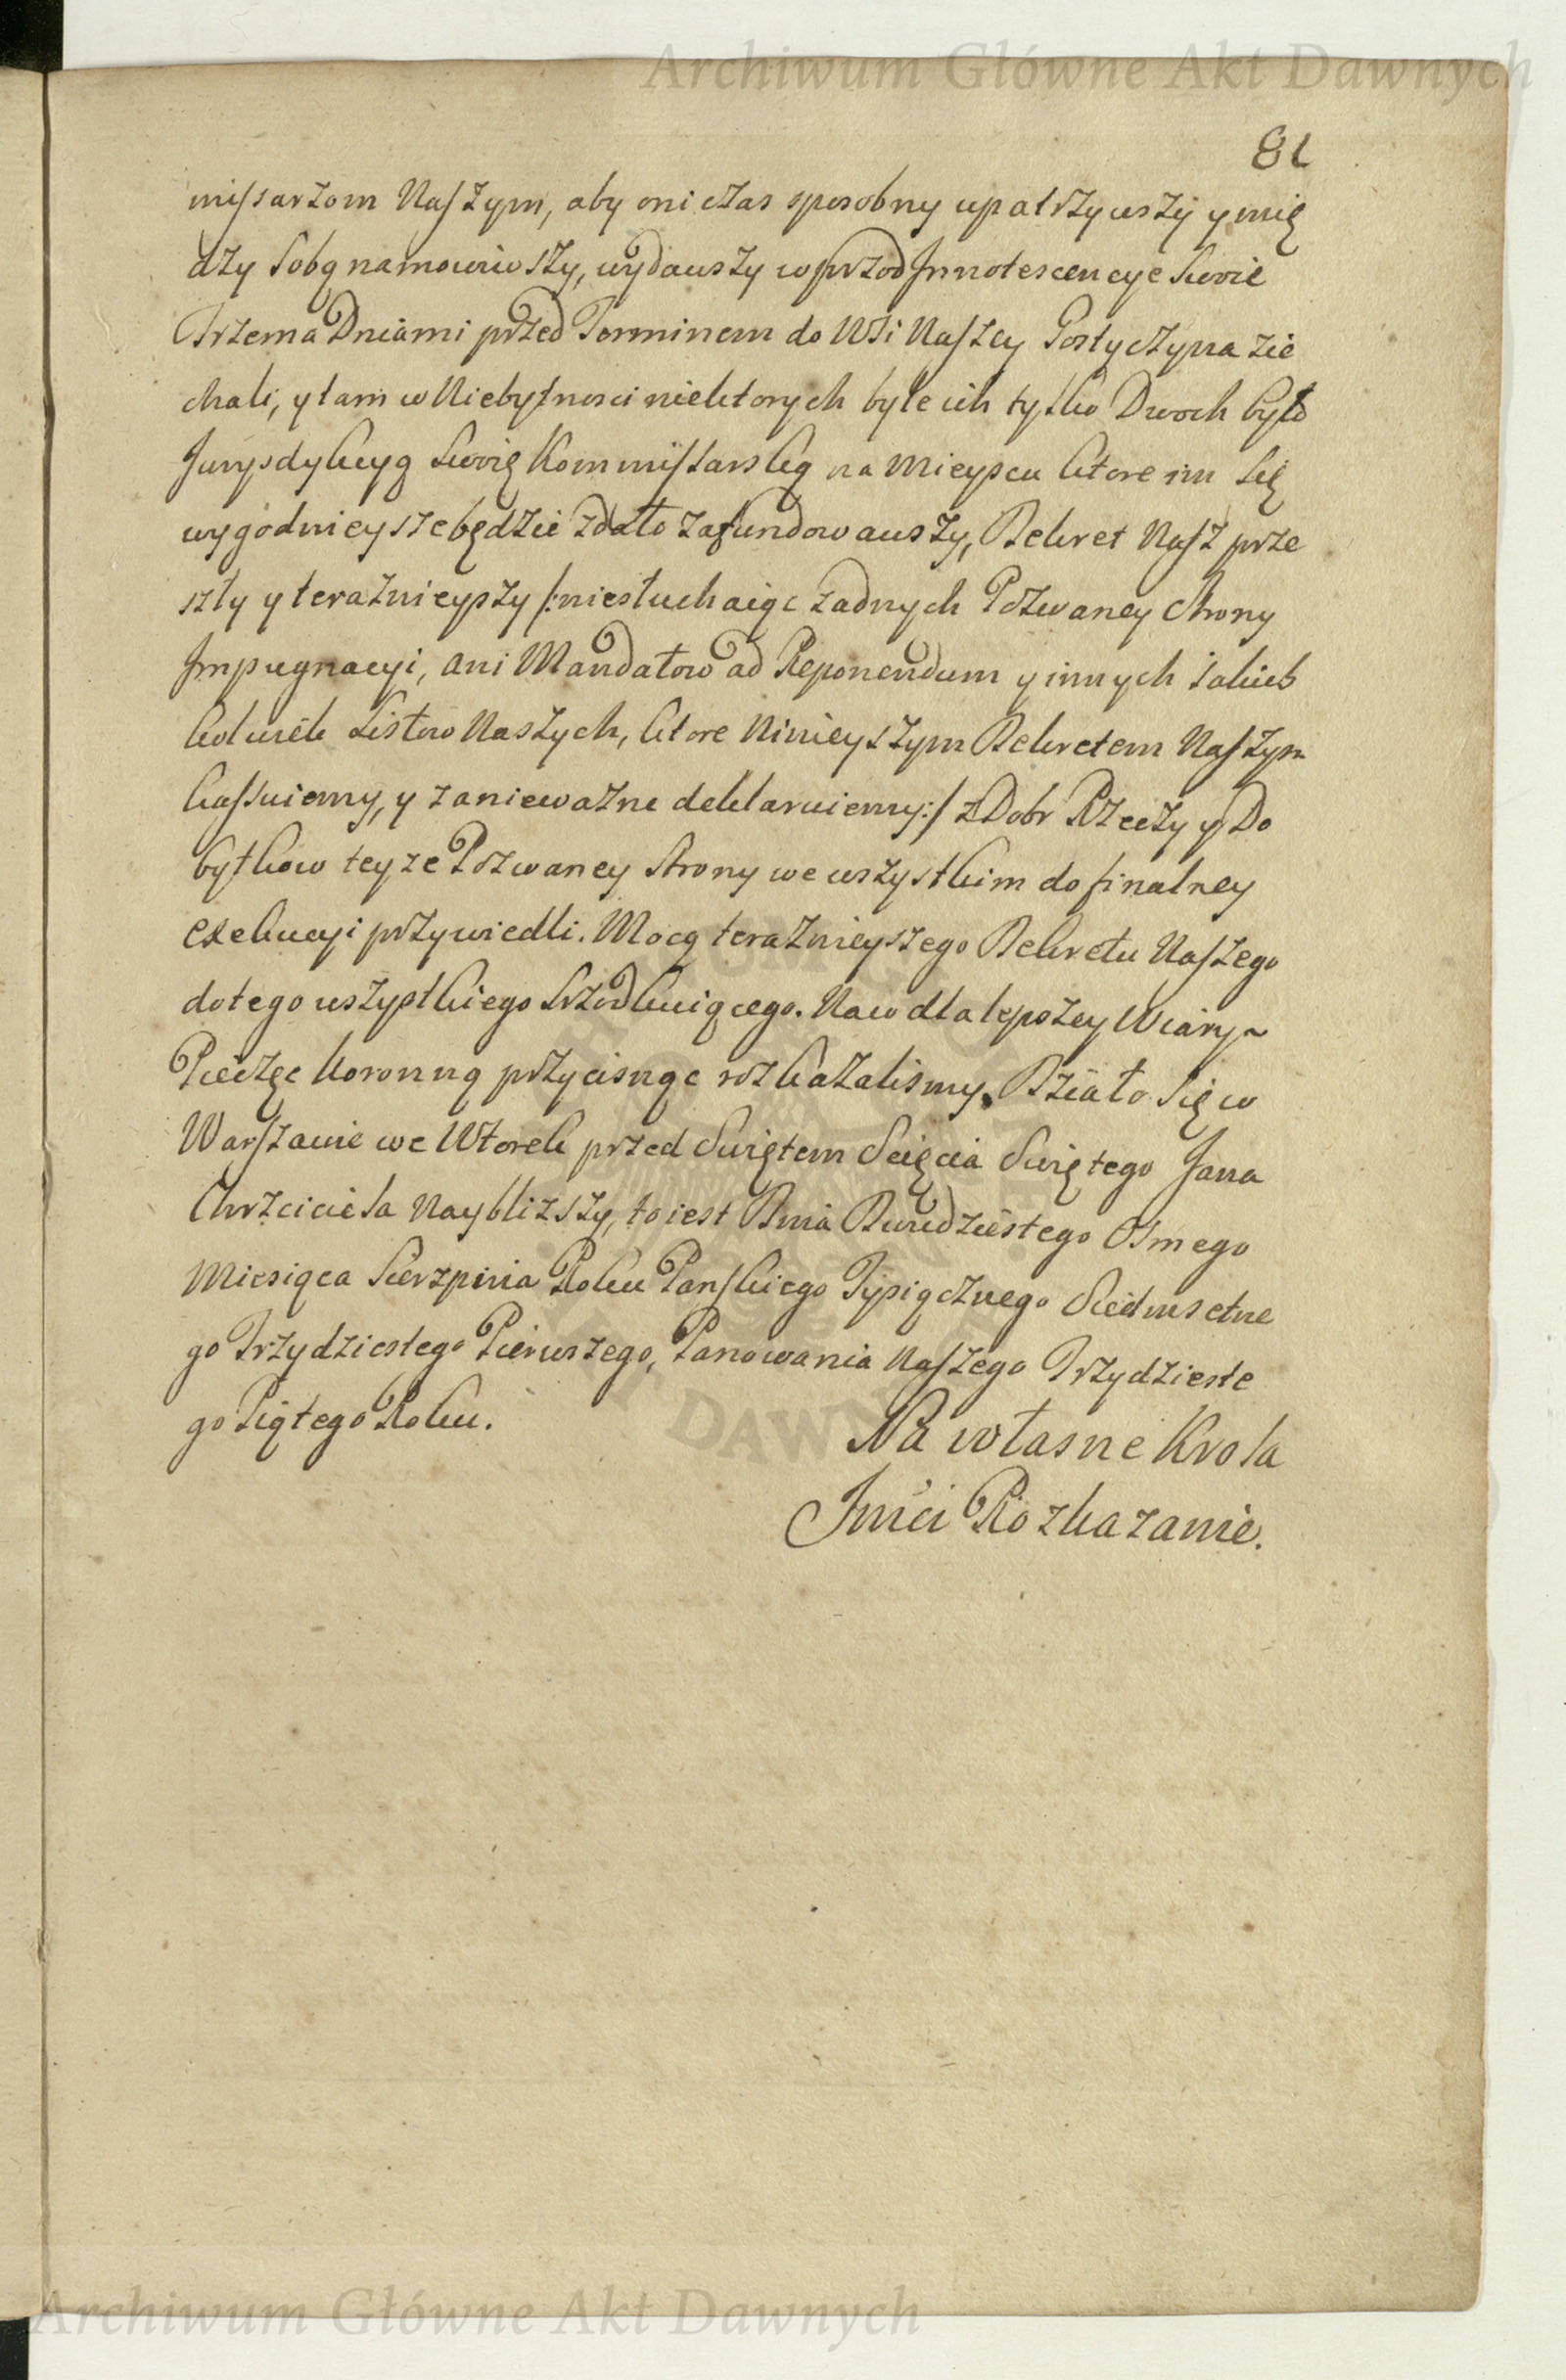 Archiwum Główne Akt Dawnych
81
missarzom Naszym, aby oni czas sposobny upatrzywszy y mię
dzy sobą namowiwszy, wydawszy wprzod Innotescencye swoie
Trzema Dniami przed Terminem do Wsi Naszey Gostyczyna zie
chali, y tam w Niebytnosci niektorych byle ich tylko Dwoch było
Jurysdykcyą swoię Kommissarską na Mieyscu ktore im się
wygodnieysze będzie zdało zafundowawszy, Dekret Nasz prze
szły y teraznieyszy /:niesłuchaiąc zadnych Pozwaney Strony
Impugnacyi, ani Mandatow ad Reponendum y innych iakich
kolwiek Listow Naszych, ktore Ninieyszym Dekretem Naszym
kassuiemy, y zaniewazne deklaruiemy:/ z Dobr Rzeczy y Do
bytkow teyze Pozwaney Strony we wszystkim do finalney
exekucyi przywiedli. Mocą teraznieyszego Dekretu Naszego
do tego wszystkiego srzodkuiącego. Naco dla lepszey Wiary~
Pieczęc Koronną przycisnąc rozkazalismy. Działo się w
Warszawie we Wtorek przed Swiętem Scięcia Swiętego Jana
Chrzciciela Nayblizszy, to iest Dnia Dwudziestego Osmego
Miesiąca Sierpnia Roku Panskiego Tysiącznego Siedmsetne
go Trzydziestego Pierwszego, Panowania Naszego Trzydzieste
go Piątego Roku.
Na własne Krola
Jmści Rozkazanie.
Archiwum Główne Akt Dawnych